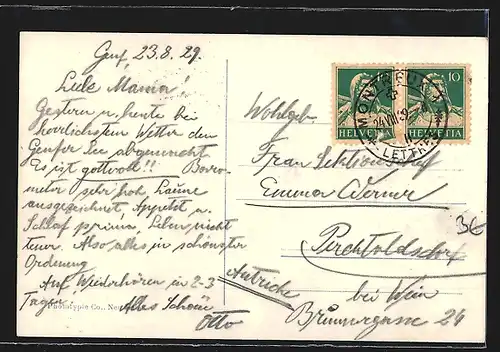 Genf, 23.8.29.
Liebe Mama!
Gestern u. heute bei
herrlichstem Wetter den
Genfer See abgerutscht
Es ist gottvoll!! Baro-
meter sehr hoch, Laune
ausgezeichnet, Appetit u.
Schlaf prima, Leben nicht
teuer. Also alles in schönster
Ordnung
Auf Wiederhören in 2-3
Tagen Alles Schöne
Otto
Phototypie Co.,
10
HELVETIA HELVETIA
MONTREUX
LETTRES
Wohlgeb.
Frau
Emma Werner
Perchtoldsdorf
bei Wien
Autriche
Brunnergasse 24